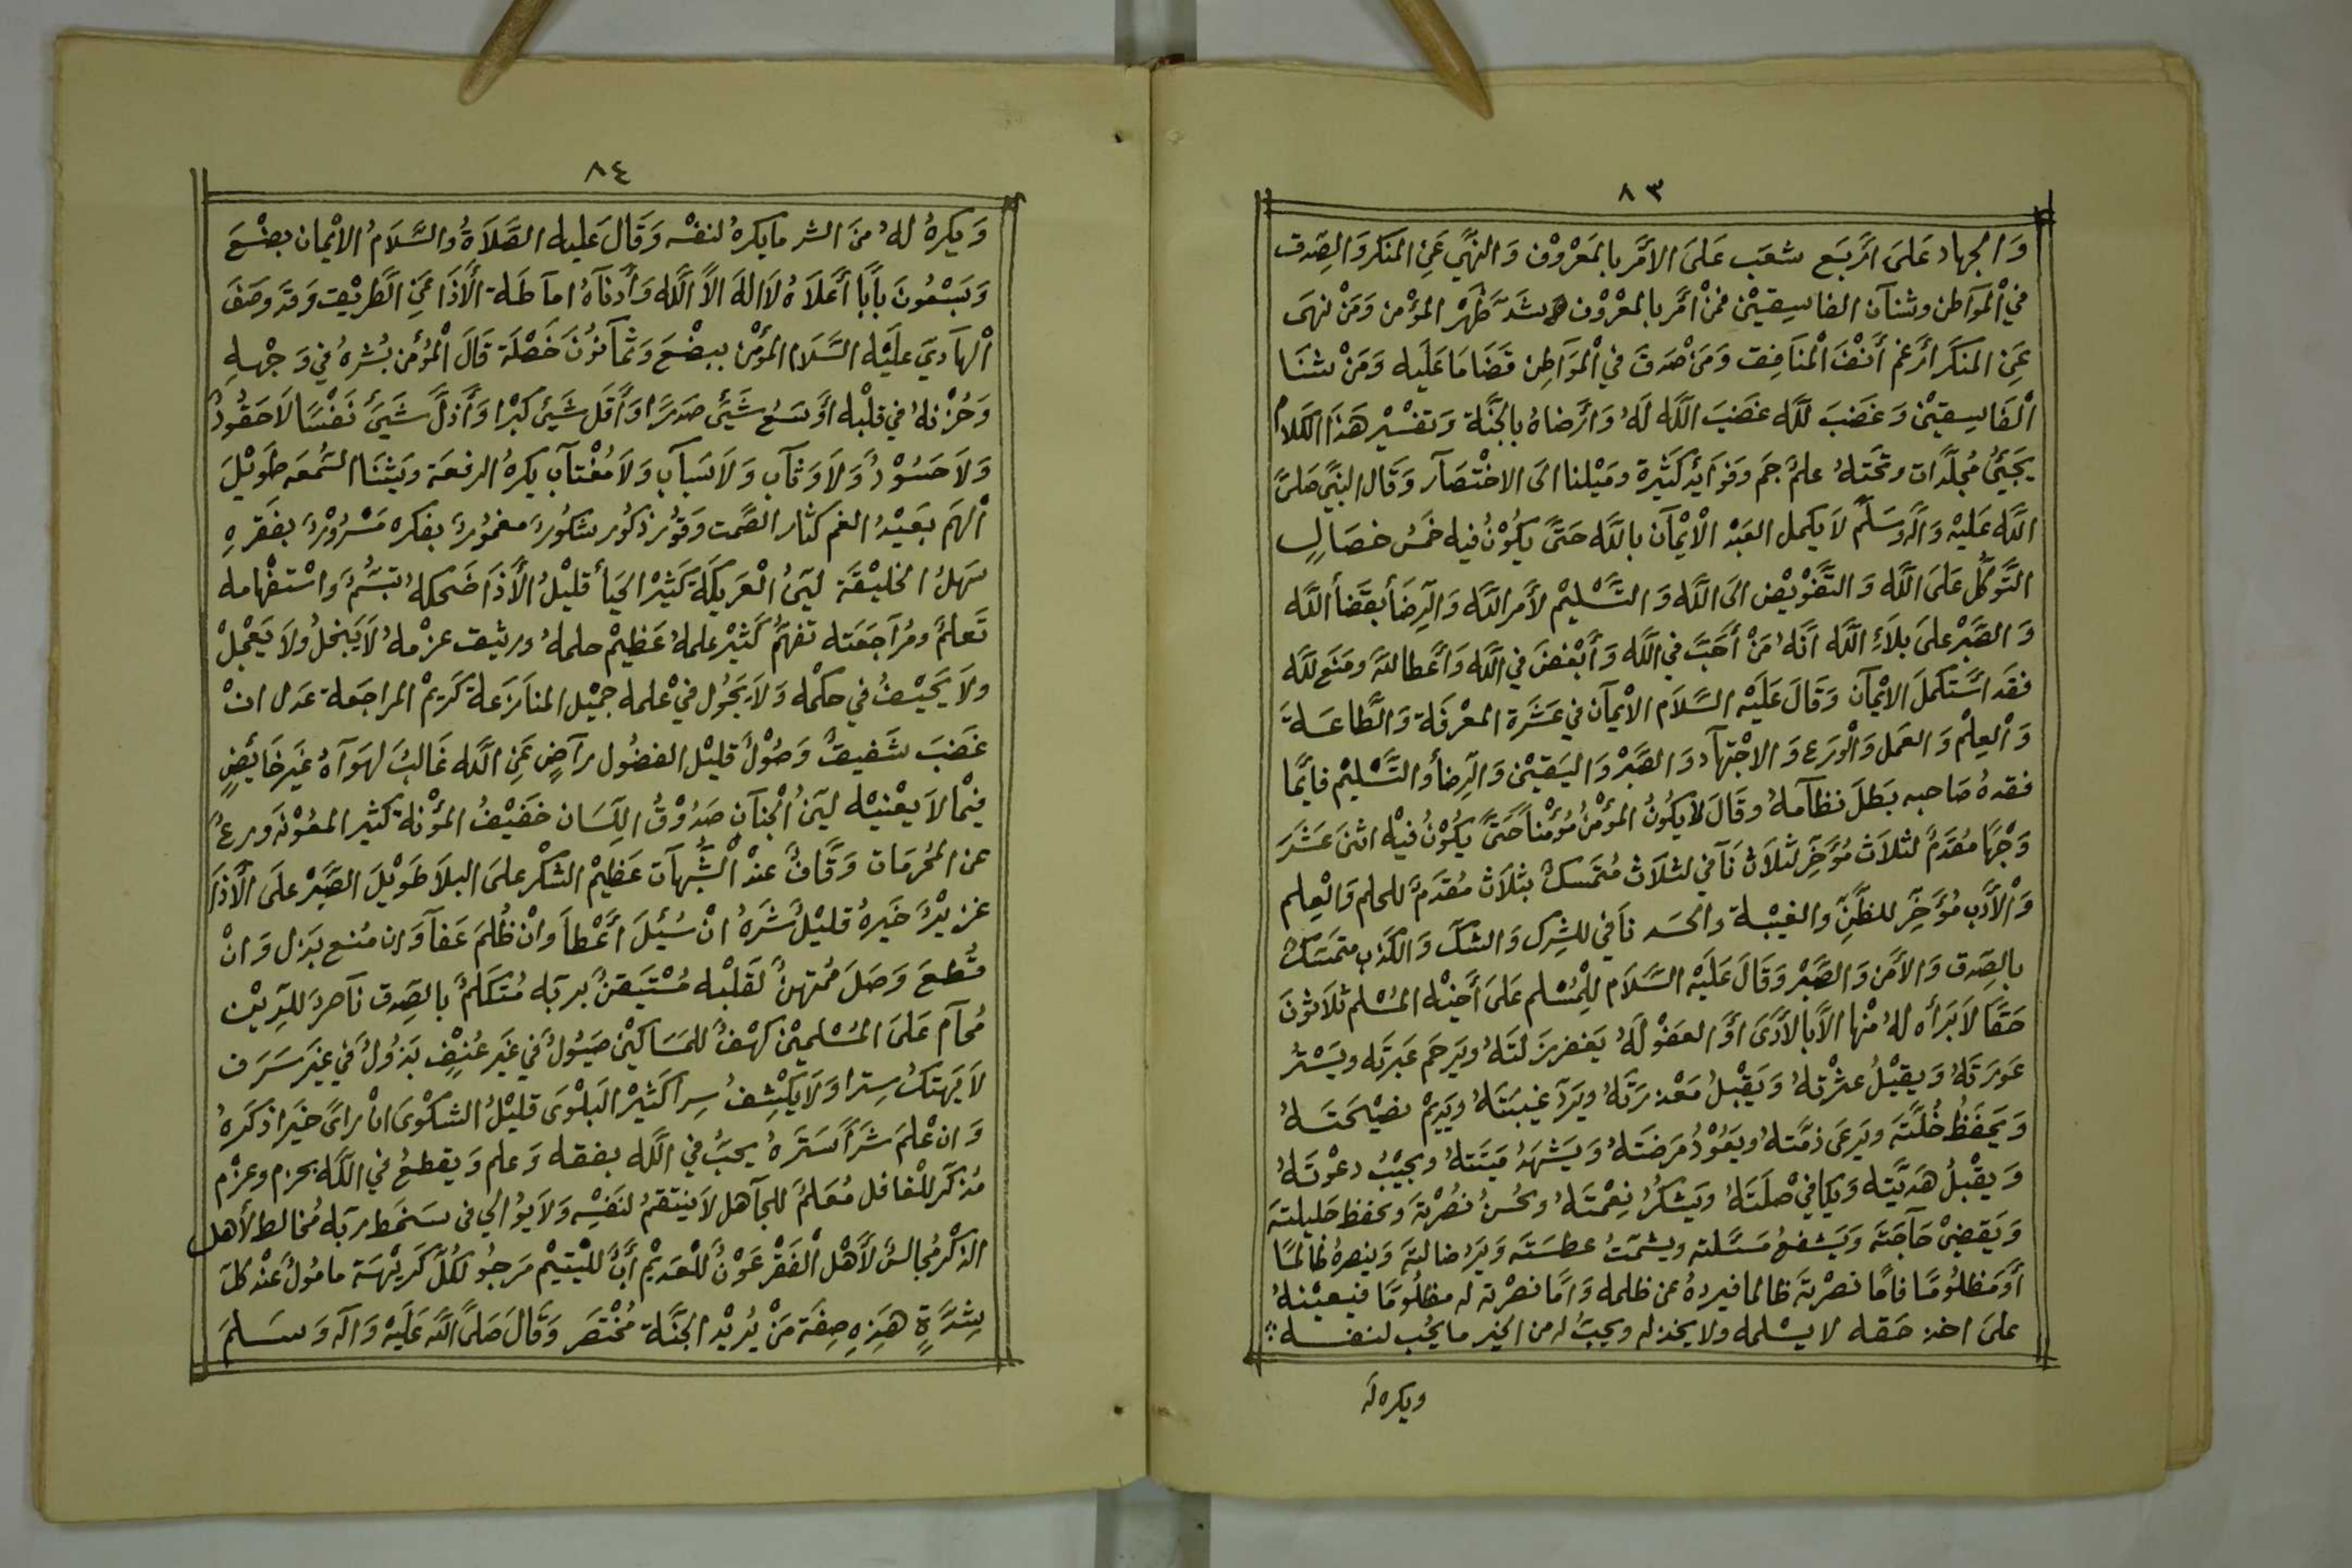 ٨٣
وَالجهاد عَلىَ أرْبَع شعَب عَلىَ الأمَر بالمَعْرُوْف وَالنهَّي عَنِ المنكر وَالصِدق
في اْلمَوَاطن وشنآن الفاسِقيْن فمَنْ أمَر بالمعْرُوْف شدَّ ظهْر المؤْمن وَمَنْ نهَى
عَنِ المنكر أرْغم أنْفَ اْلمنَافِق وَمَنْ صْدق في اْلمَوَاطِن قضَا مَا عَليَه وَمَنْ شنَا
اْلفَاسِقيْن وَغضبَ للَّه غضبَ اللَّه لهُ وَأرْضاهُ بالجنَّة وَتفسْيْر هَذا الكَلام
يجَيئُ مُجلَّدَات وتحَتهُ علمٌ جمَ وَفوَايْد كَثيْرة ومَيْلنا الىَ الاخْتصَآر وَقَال النبَّي صَلىَّ
اللَّه عَليْه وَآله وَسَلمَّ لاَ يكمل العَبْد اْلايْمآن باللَّه حَتىَّ يكُوْنُ فيه خمَسُ خصَالٍ
التَّوكُّل عَلىَ اللَّه وَالتَّفَوْيْض الىَ اللَّه وَالتَّسْليْم لأمر اللَّه وَالرِضَا بقضَأ اللَّه
وَالصَّبْر علىَ بلاَءِ اللَّه انَّهُ مَنْ أحَبَّ في اللَّه وَأبْغضَ في اللَّه وَأعْطا للهَّ ومَنَع للَّه
فقد اسْتكملَ الايْمآن وَقَالَ عَليَه السَّلاَم الايْمآن في عَشَرَة المعْرفَة وَالطَّاعَةَ
وَاْلعِلْم وَالعَمل وَاْلورَع وَالاجْتهآد وَالصَّبْر وَاليَقيْن وَالرِضأ وَالتَّسْليْم فأيمَّا
فقدهُ صَاحبه بَطلَ نظآمهُ وقَالَ لاَ يكُونُ المؤْمنُ مُؤمْناً حَتىَّ يكُوْنُ فيْه اثنىَ عَشَرَ
وَجْهًا مُقدَمٌ لثلاَث مُؤَخِّر لثلاَث نَآفي لثلاَث مُتمَسكٌ بثلاَث مُقدَمٌ للحلم وَالْعِلم
وَاْلأدَب مُؤَخِّر للظَّنِّ وَالغيْبة وَالحسَد نَافي للشِرك وَالشكّ وَالكَذب متمَسَكٌ
بالصِدق وَالأمَن وَالصَّبْر وَقَالَ عَليَه السَّلاَم للمُسْلم عَلىَ أخيْه المُسْلم ثلاَثوْنَ
حَقًا لاَ بَرَأه لهُ منْها الاَّ بالأدَىَ أوَ العفوْ لهُ يَغفر زَلتَهُ ويَرحَم عَبرَته ويَسْترُ
عَورَتهُ وَيقيْلُ عثْرَتهُ وَيَقْبلُ مَعْذرَتَهُ ويَردّ غيبَتَهُ ويَديْم نصْيْحَتَهُ
وَيحَفَظُ خُلَّتَه ويَرعَى ذمَّتهُ ويَعُوْدُ مَرَضَتَهُ وَيَشهَدُ مَيَتَتهُ ويجيْبُ دعْوتَهُ
وَيقْبلُ هَديَّته وَيكَافيْ صْلتَهُ وَيَشكُرُ نِعْمتَهُ وَيحُسنُ نصُرْتهَ وَيحفظ حَليلَتهَ
وَيَقضيْ حَآجَتَه وَيَشفعُ مَسَئلته ويشمّتُ عطسَتَه وَيَردُ ضالتهَ وَينصرهُ ظالماً
أوْ مَظلوُمًا فامَّا نصْرتهَ ظالما فيردهُ عن ظلمه وَامَّا نصْرته له مظلُومًا فيعيْنهُ
علىَ اخذ حَقه لا يسْلمه ولا يخذله ويحبُّ له من الخير ما يحُب لنفسه
ويكره له
٨٤
وَيكرهُ لهُ منَ الشر ما يكرهُ لنفسْه وَقَالَ عَليه الصَّلاَةُ والسَّلاَمُ الايْمان بضْعَ
وَسَبْعُونَ بَأبًا أعْلاَهُ لاَ الهَ الاَّ اللَّه وَأدناَهُ امآطَة الأَذَا عَنِ الطَّريْق وَقد وصَفَ
اْلهَادِيَ عَليْه السَّلاَم المؤْمن ببضْعَ وَثمآنوُنَ خصْلَة قَالَ اْلمُؤمن بُشرهُ في وَجْههِ
وَحُزْنهُ في قلبْه أوْسَعُ شَيئَ صَدرًا وَأقل شَيئ كبْرا وَأذلّ شَيَئ نَفْسًا لاَ حَقُودٌ
وَلاَ حَسُوْدٌ وَلاَ وَثآب وَلاَ سَبآب وَلاَ مُغْتآب يكرهُ الرفعَة وَيشنَا السُّمعَه طَويْلَ
اْلهَم بَعيْدُ الغم كثار الصَّمت وَقوُر ذكُور شكُورٌ مغمُورٌ بفكره مَسْرُوْرٌ بفقرهِ
سَهلُ الخليْقَة ليّنُ اْلعَريكَة كَثيْر الحيَأ قليْلُ الأَذَا ضَحكهُ تبَسُّمٌ وَاسْتفْهامه
تَعلمٌ ومُرَآجَعَته تفهَّمٌ كَثيْر علمهُ عَظيْم حلمهُ وريثق عزْمهُ لاَ يَبخلُ ولاَ يَعْجلْ
ولاَ يحَيْفُ في حكمْه وَلاَ يجَوُل فيْ علمه جميْل المنازَعة كَريْم المراجَعة عَدل انْ
غضَبَ شَفيقٌ وَصُوْلٌ قليْل الفضُول رآضٍ عَنِ اللَّه غَالبٌ لهَوَآهُ غَير خَايَضٍ
فيمْا لاَ يعْنيْه ليّنُ اْلجنآن صَدُوْقُ اللِّسَان خفَيْفُ المؤنْة كثير المعُوْنَه ورعٌ
عن المحُرمَات وَقَّافٌ عندْ اْلشُّبهآت عَظيْم الشكْر علىَ البلاَ طَويْلَ الصَّبْر علىَ الأَذَا
عزيْزٌ خَيرهُ قليْلٌ شَرهُ انْ سُئِلَ أعْطاَ وانْ ظُلمَ عَفآ وَان مُنع بَذل وَانْ
قُطعَ وَصَلَ مُمتهنٌ لقَلبْه مُسْتَيَقنٌ بربّه مُتكَلمٌ بالصِّدق نآصرٌ للدِّيْن
مُحآم عَلىَ المسْلميْن كهْفٌ للمَسَاكيْن صَيُولٌ في غَير عُنفٍ بَذوُلٌ في غَير سَرَف
لاَ يَهتكُ سِترا وَلاَ يكْشِفُ سِرا كَثيْر البَلوْىَ قليْلُ الشكَوْىَ انْ رأىَ خَيرا ذكَرهُ
وَان عْلمَ شَرًا سَتَرهُ يحبُّ في اللَّه بفقه وَعلم وَيقطعُ في اللَّه بحزم وعزْم
مُذكّرٌ للغافل مُعَلمٌ للجآهل لاَ ينتقمُ لنفَسِه وَلاَ يُوَالي في سَخط ربّه مُخالط لأهل
الذكْر مُجالسٌ لأهْل اْلفقْر عَوْنٌ للعَديْم أبٌّ لليْتيْم مَرجُو لكُلّ كَريْهَة مامُولٌ عنْد كلّ
شِدَّةٍ هَذِهِ صِفَة مَنْ يُريْد الجنَّة مُخْتصَر وَقَالَ صَلىَّ اللَّه عَليَه وَآله وَسَلمَ